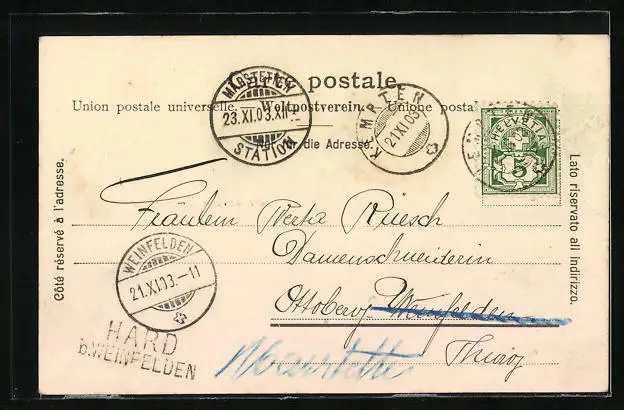 Carte postale.
Union postale universelle. — Weltpostverein. — Unione postale
Nur für die Adresse.
MÄRSTETTEN
23.XI.03.XII
STATION
KEMPTEN
21.XI.03
HELVETIA
5
Côté réservé à l'adresse.
Lato riservato all indirizzo.
Fräulein Berta Rüesch
Damenschneiderin
Ottoberg Weinfelden
Thurg
Märstetten
WEINFELDEN
21.XI.03.–11
HARD
b.WEINFELDEN